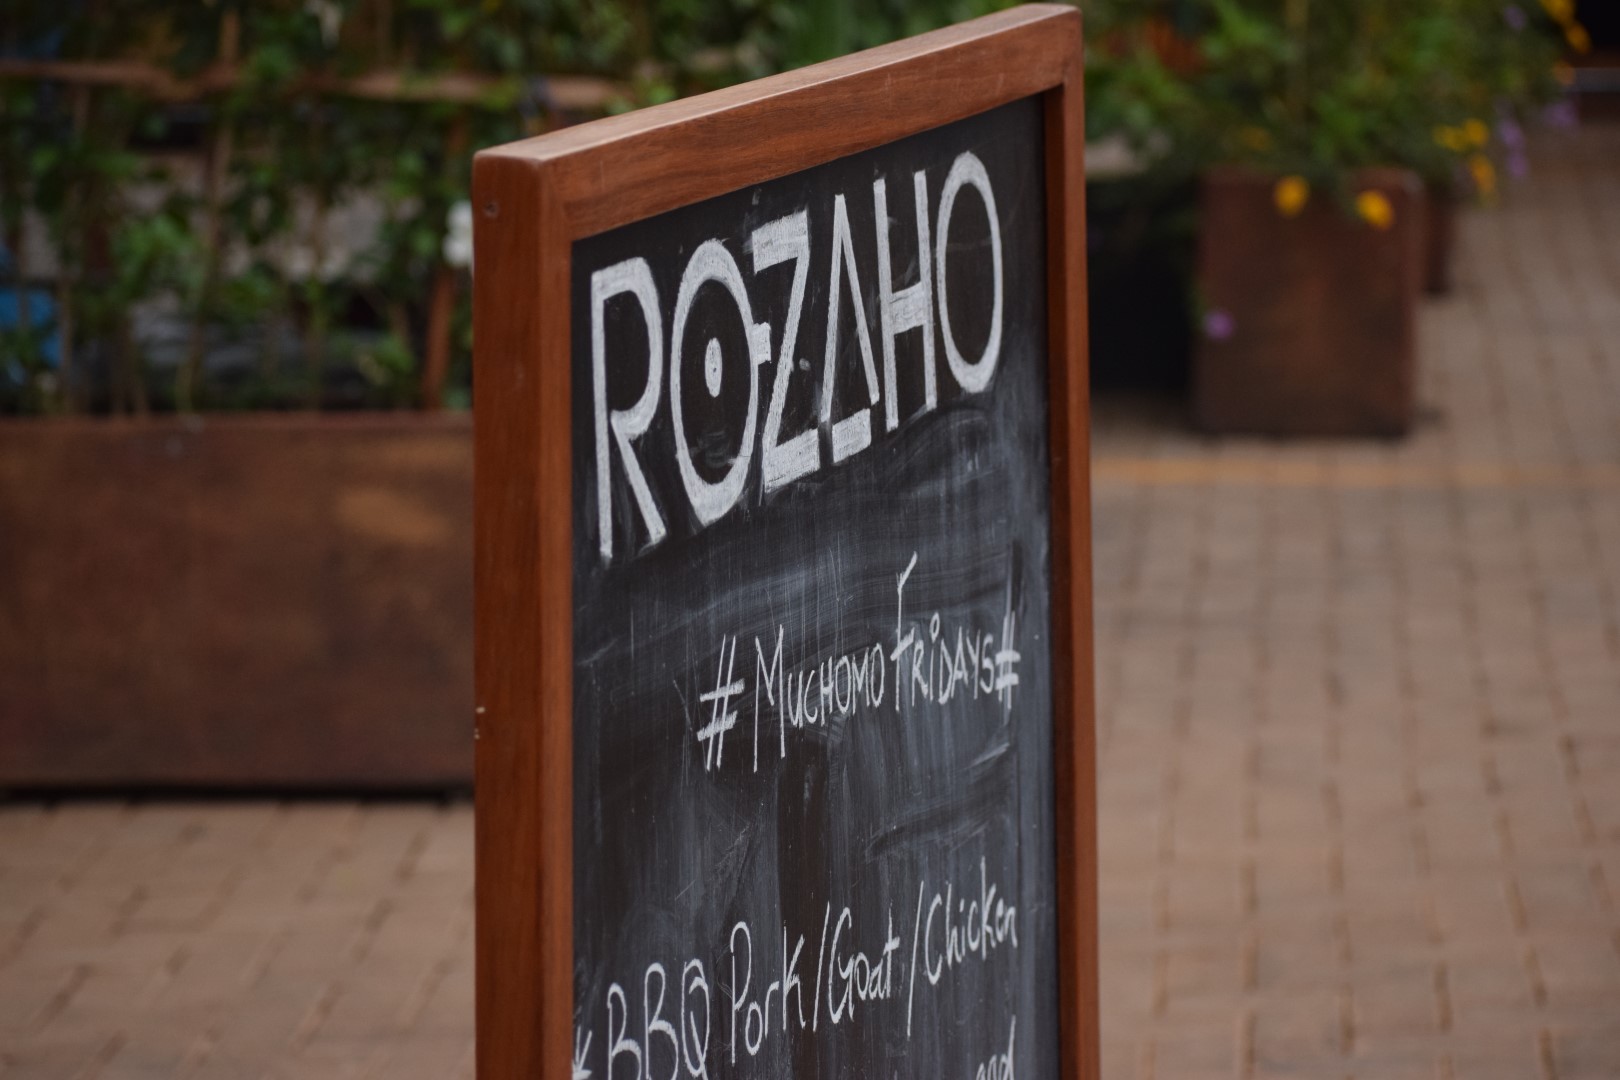 ROZAHO
#MUCHOMO FRIDAYS#
* BBQ Pork/Goat/Chicken
and